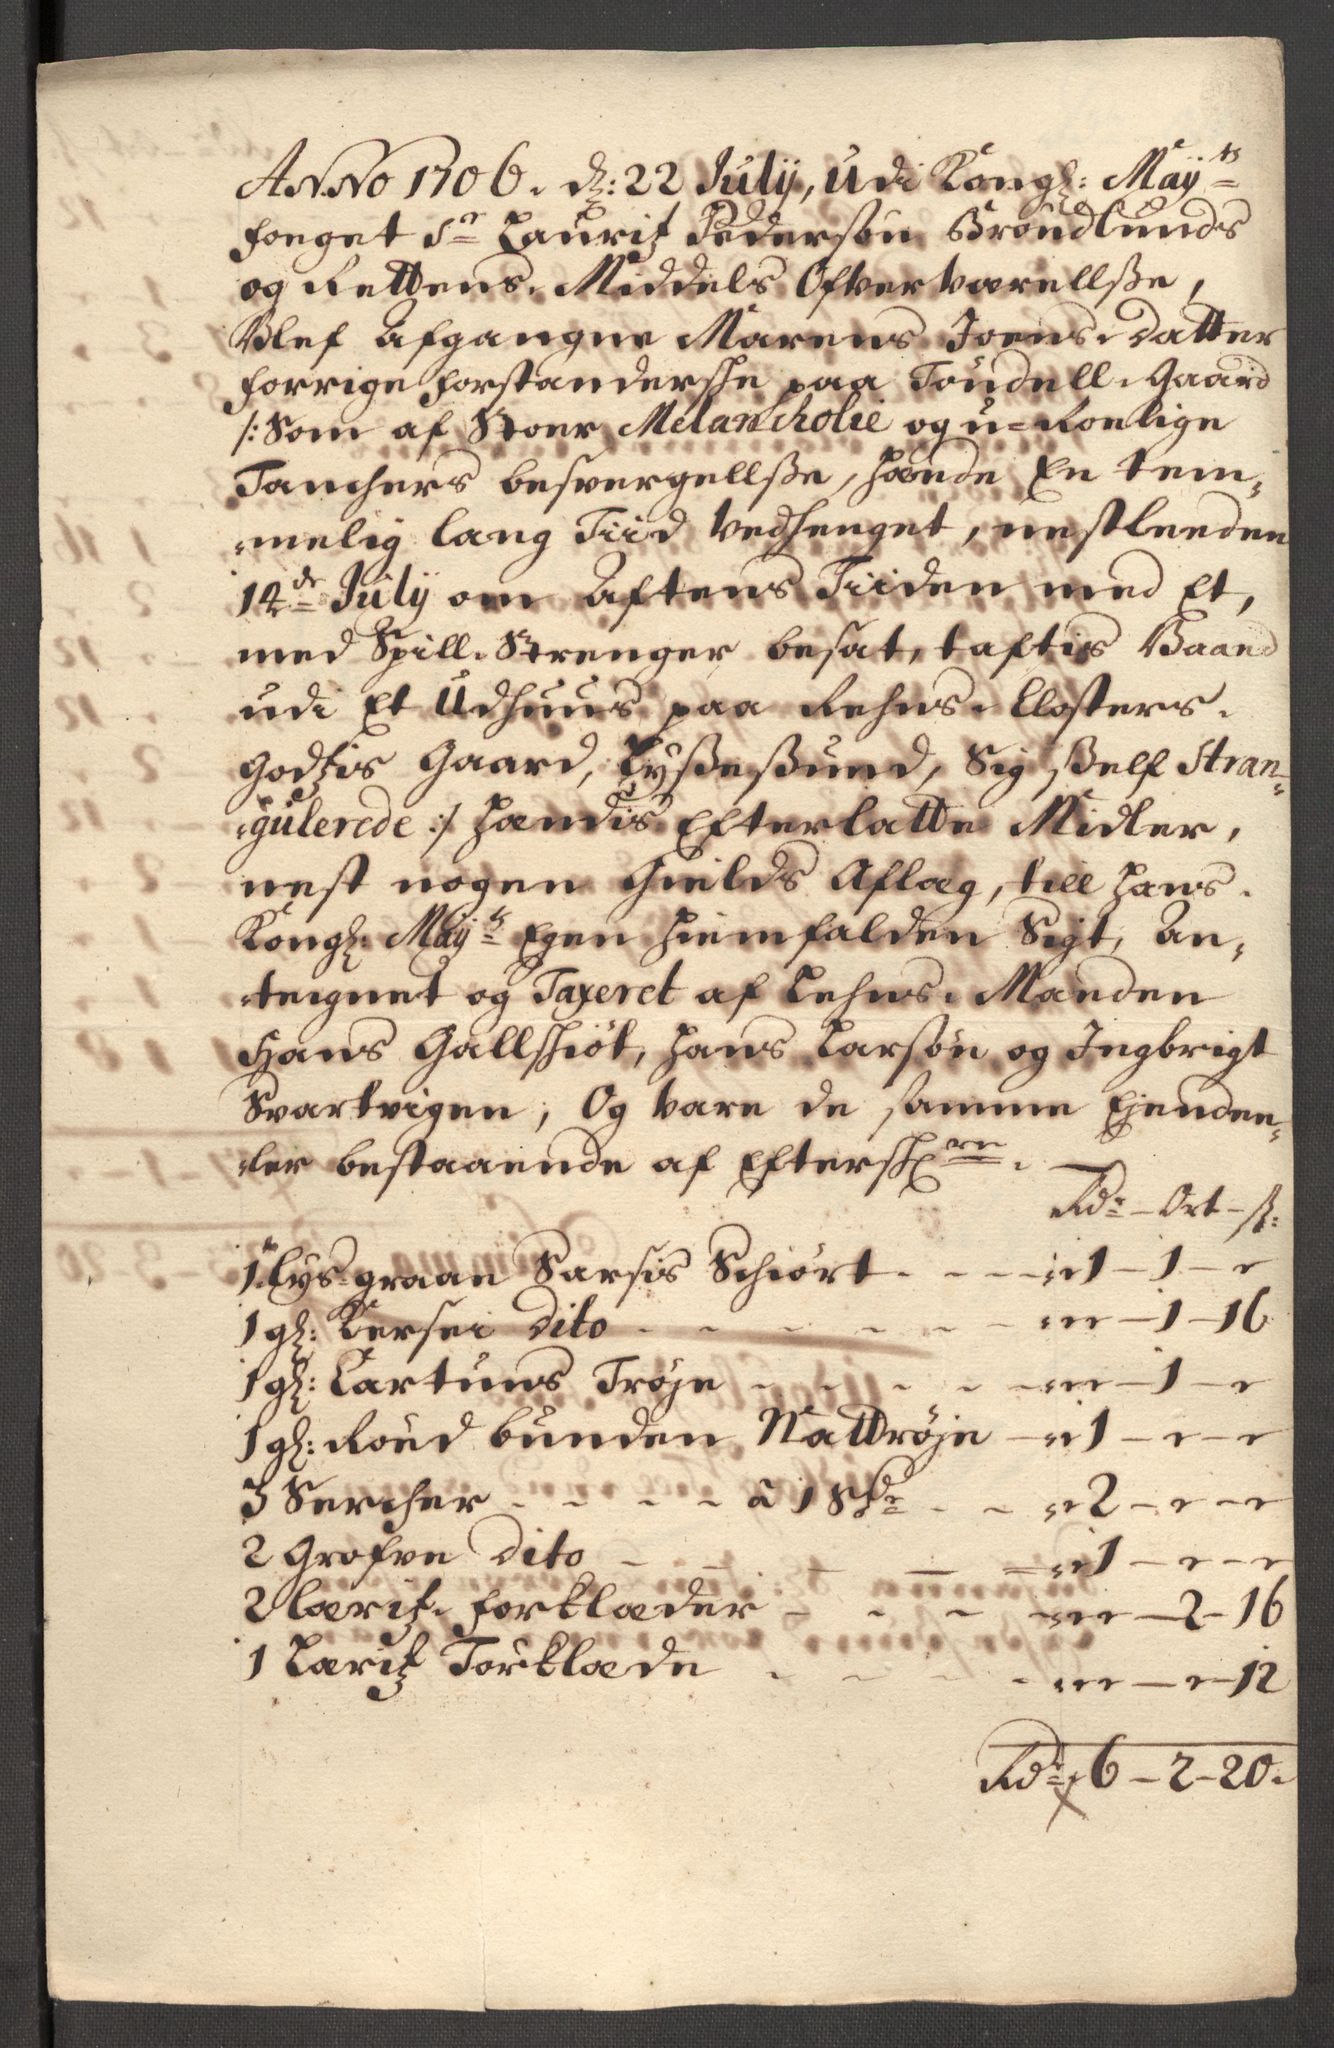 ANNO 1706. dȝ: 22 Julij, Udi Kongl: Maÿts
foeget Sr Lauritz Pedersøn Brøndlunds
og Rettens Middels Ofververellsse,
Blef Afgangne Marens Joens datter
forrige forstanderske paa Toudell Gaard
/: Som af Stoer Melancholie og u-Roelige
Tanchers besvergellsse, hafde En tem-
-melig lang Tiid vedhenget, nestleeden
14de July om Aftens Tiiden med Et,
med Spill. Strenger besat, taftis Baand
udi Et Udhuus paa Rehns Closters
Godtzis Gaard, Lyssessund, Sig sself Stran-
-gulerede :/ Hendis Efterlatte Midler,
nest nogen Gields Aflæg, till Hans
Kongl: Maÿts Egen Hiemfalden Sigt, An-
-teignet og Taxeret af Lehns Manden
Hans Gallschiøt, Hans Larsøn og Ingbrigt
Svartvigen, Og vare de samme Ejendee-
-ler bestaaende af Efterskrne.
Rdr - Ort - ß:
1 Lys-graae Sarsis Schiørt - - - 1 - 1 -
1 gl: Kersei dito - - - - 1 - 16
1 gl: Cartuns Trøje - - - - 1 -
1 gl: Røed bunden Nattrøje - 1 - -
3 Sercher - - - - â 1 - - 2 - -
2 Grofve dito - - - 1 - -
2 Læritz forklæder - - - - 2 - 16
1 Læritz Tørklæde - - - - - 12
Rdr 6 - 2 - 20.